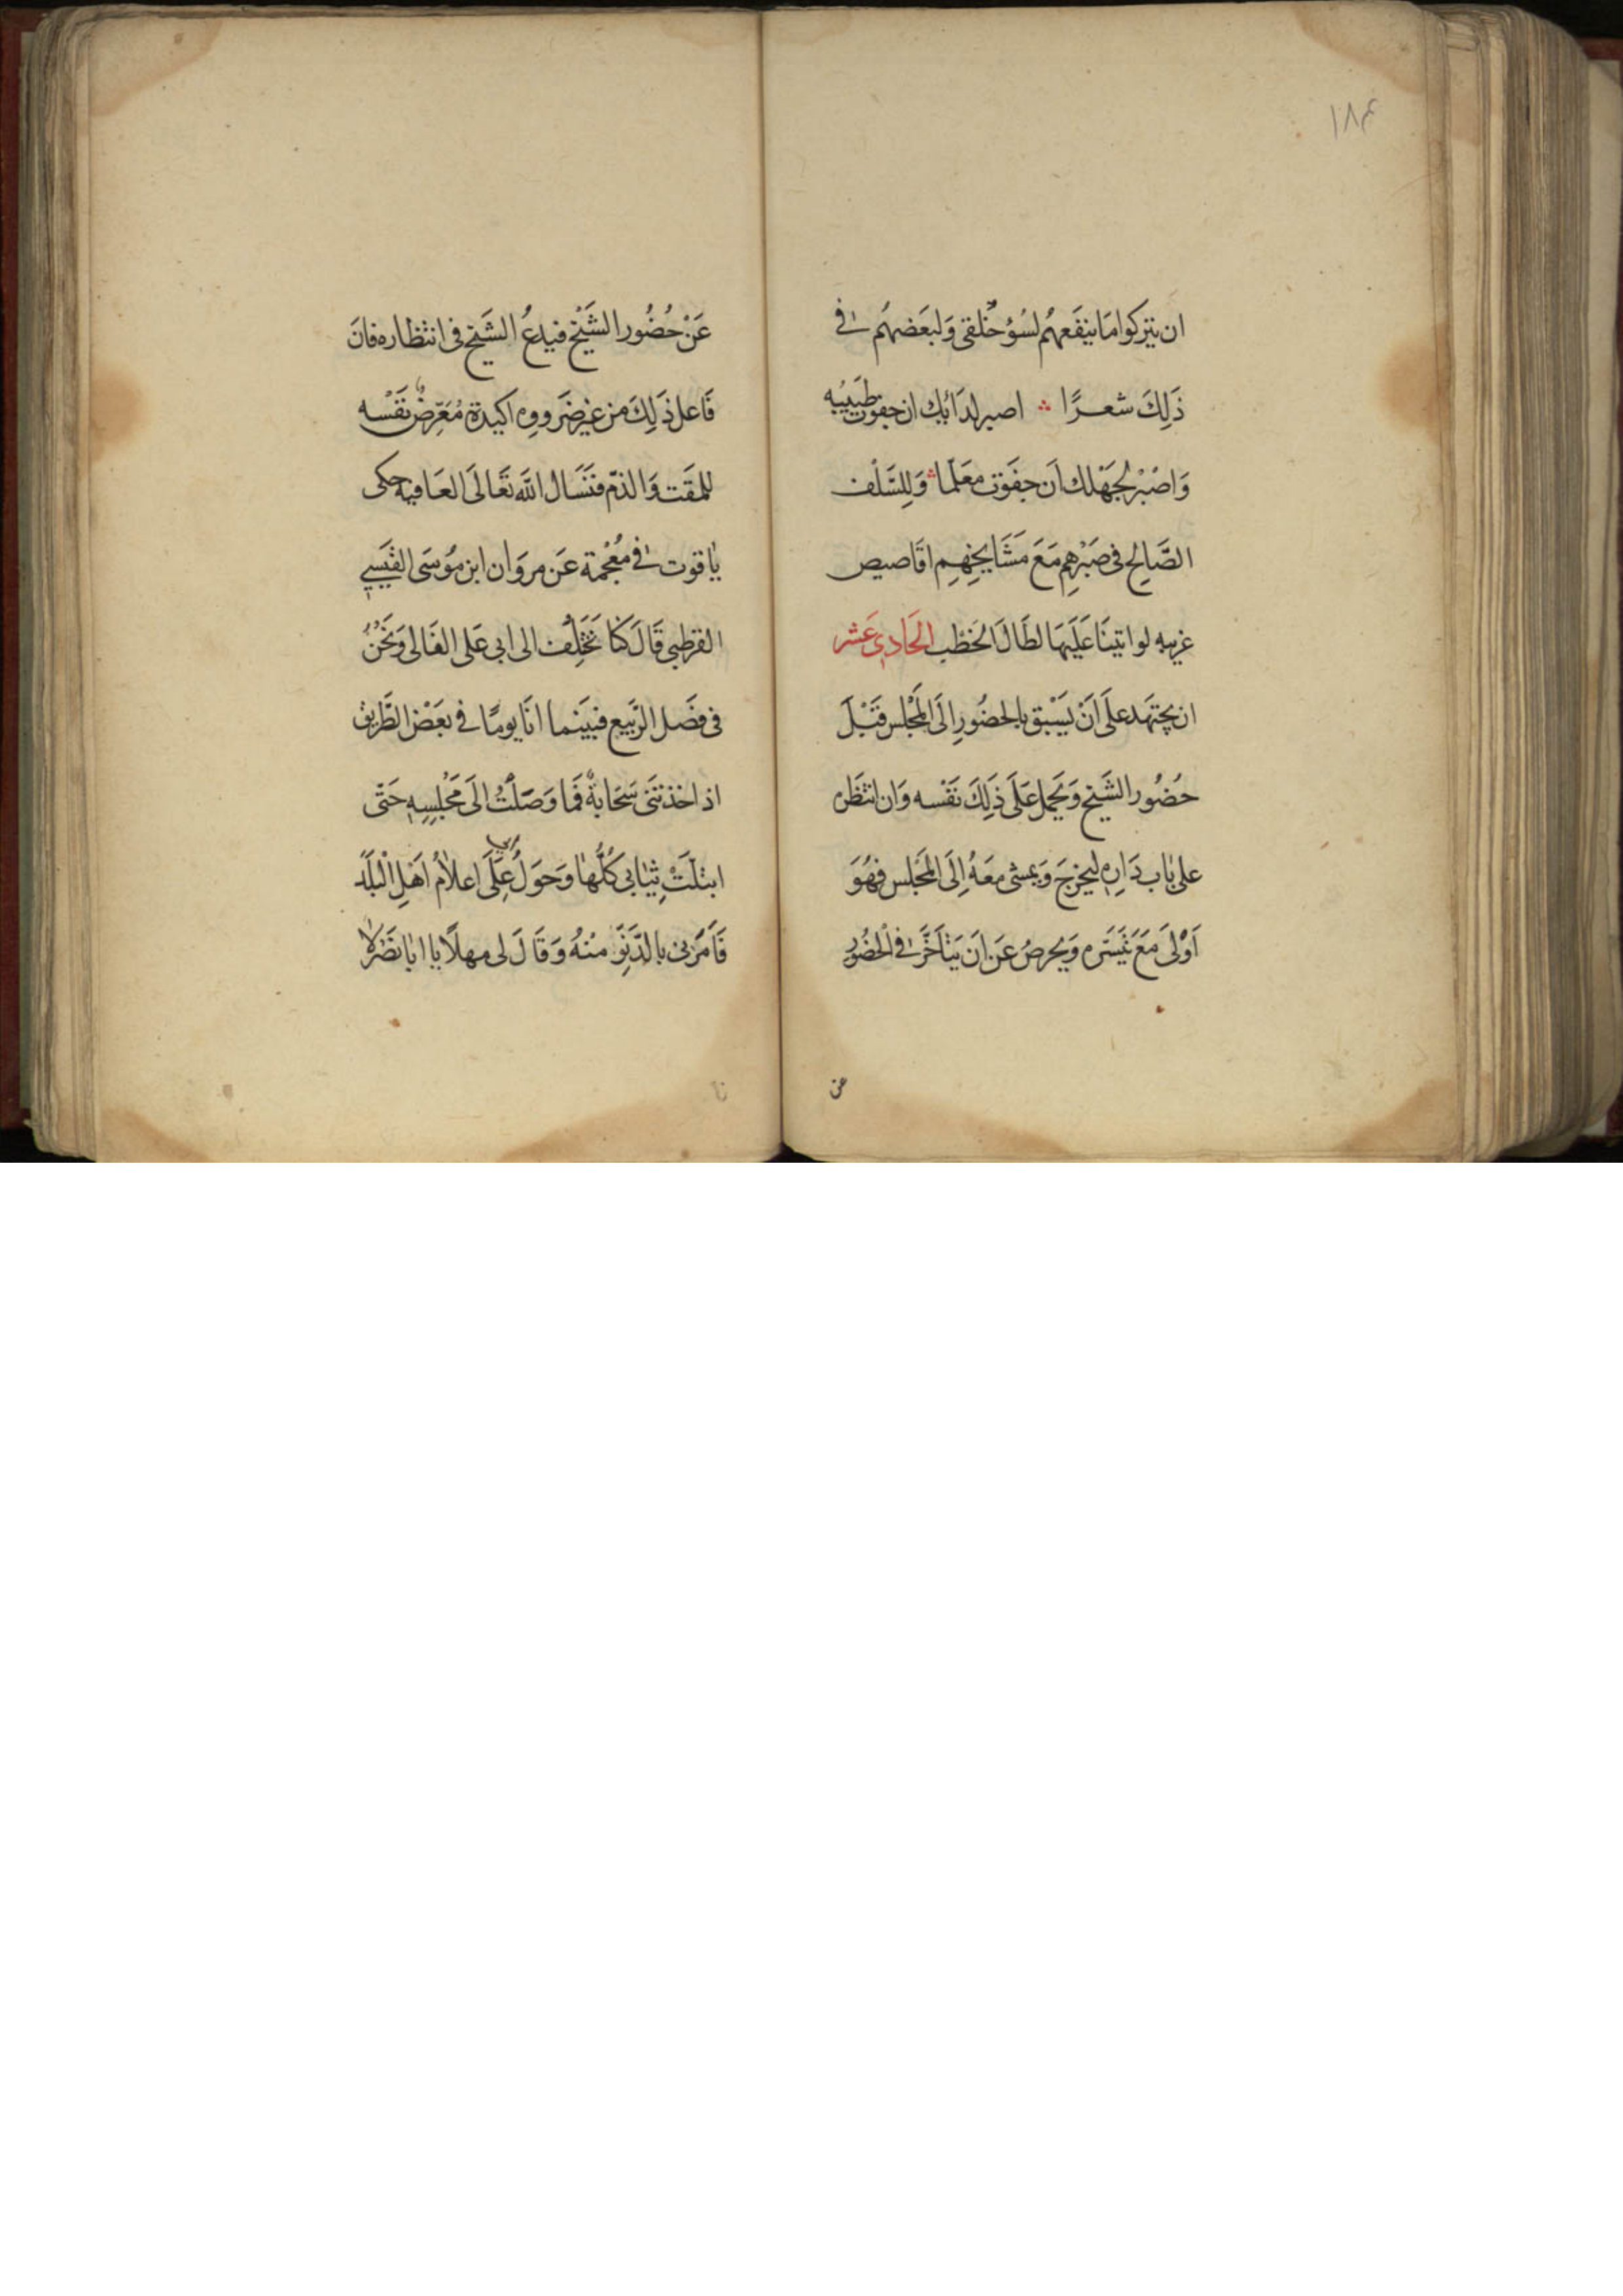 ١٨٤
ان يتركوا مَا ينفَعهُم لسُوْء خُلقى وَلبَعَضهُم فى
ذَلِكَ شعرًا ؞ اصبر لدَائِك ان جفوت طَبيْبه
وَاصْبْر لجَهْلك اَن جفَوت معَلّما ؞ وَلِلسَّلْف
الصَّالِح فى صَبْرهِم مَعَ مَشَايخِهِم اقَاصيص
غريبه لو اتينَا عَليَهَا لطَالَ الخَطْب الحَادِى عَشر
ان يجتهَد علَى اَنْ يَسْبق بالحضُورِ اِلَى المَجْلس قَبْلَ
حُضُور الشَيخ وَيَحمل عَلَى ذَلِكَ نَفْسه وَان انتَظره
على بَاب دَارِه ليخرجَ وَيمشى معَهُ اِلَى المَجْلس فهُوَ
اَوْلىَ مَعَ تَيَسّره وَيحرصُ عَن اَن يَتأخَّر فى الحُضُورِ
عن
عَنْ حُضُور الشَيْخ فيدعُ الشَيخ فى انتظاره فانَ
فَاعل ذَلِكَ من غير ضَرووه اكيدة مُعَرِّضٌ نَفْسَه
للمقَت وَالذمّ فنَسَال اللّه تعَالَى العَافيه حكى
يَاقوت فى مُعْجمة عَن مروَان ابن مُوسَى القَيسى
القرطبى قَالَ كنا نَخْتَلِف الى ابى عَلى الغَالى وَنَحْنُ
فى فصَل الرّبَيع فبيَنما انَا يومًا فى بعَضْ الطَّريق
اذ اخذتنَى سَحَابةٌ فَما وَصَلَتُْ الَى مَجْلِسِهِ حَتّى
ابتلّتَْ ثِيَابى كُلُّهَا وَحَوَلُ عِلَّى اعلَامُ اَهلِ الْبلَد
فَاَمَرنى بالدَّنِوّ منْهُ وَقَالَ لى مهلًا يا ابَا نَضْر لا